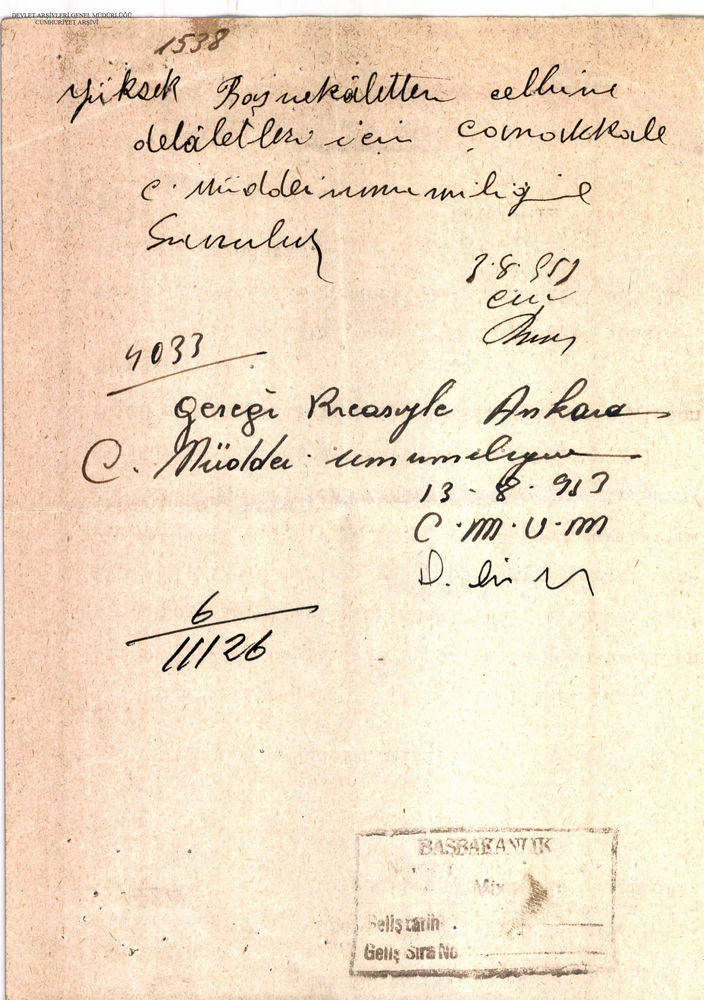 DEVLET ARŞİVLERİ GENEL MÜDÜRLÜĞÜ
CUMHURİYET ARŞİVİ
1538
Yüksek Başvekâletten celbine
delâletleri için Çanakkale
C. Müddeiumumiliğine
Sunulur
3.8.951
4033
Gereği Ricasıyle Ankara
C. Müddei umumiliğine
13 - 8 - 953
C.M.U.M
D.
6
11126
BAŞBAKANLIK
Geliş tarih
Geliş Sıra No